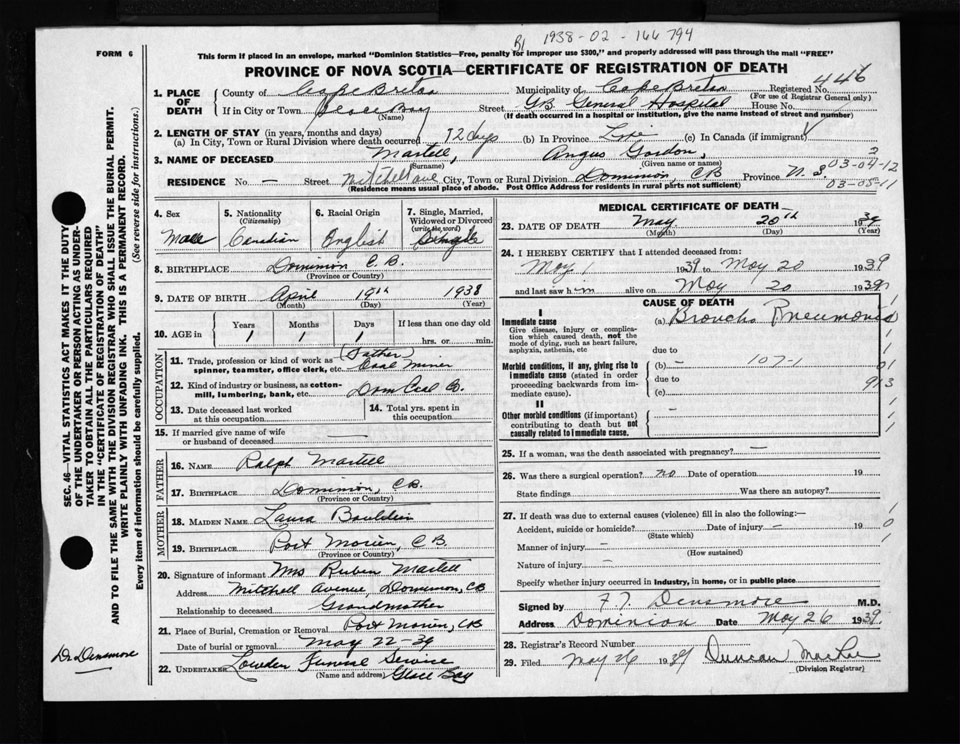 1938-02-166794
FORM 6
This form if placed in an envelope, marked "Dominion Statistics—Free, penalty for improper use $300," and properly addressed will pass through the mail "FREE"
PROVINCE OF NOVA SCOTIA—CERTIFICATE OF REGISTRATION OF DEATH
1. PLACE OF DEATH
County of Cape Breton Municipality of Cape Breton Registered No. 446
(For use of Registrar General only)
If in City or Town Glace Bay Street GB General Hospital House No.
(Name) (If death occurred in a hospital or institution, give the name instead of street and number)
2. LENGTH OF STAY (in years, months and days)
(a) In City, Town or Rural Division where death occurred 12 days (b) In Province Life (c) In Canada (if immigrant)
3. NAME OF DECEASED Martell, Angus Gordon,
(Surname) (Given name or names)
03-04-12
RESIDENCE No. — Street Mitchell ave City, Town or Rural Division Dominion, CB Province N.S.
(Residence means usual place of abode. Post Office Address for residents in rural parts not sufficient)
03-05-11
4. Sex
Male
5. Nationality
(Citizenship)
Canadian
6. Racial Origin
English
7. Single, Married, Widowed or Divorced
(write the word)
Single
8. BIRTHPLACE Dominion C.B.
(Province or Country)
9. DATE OF BIRTH April 19th 1938
(Month) (Day) (Year)
10. AGE in
Years Months Days If less than one day old
1 1 1 hrs. or min.
OCCUPATION
11. Trade, profession or kind of work as spinner, teamster, office clerk, etc. (Father) Coal Miner
12. Kind of industry or business, as cotton-mill, lumbering, bank, etc. Dom Coal Co.
13. Date deceased last worked at this occupation
14. Total yrs. spent in this occupation
15. If married give name of wife or husband of deceased —
FATHER
16. NAME Ralph Martell
17. BIRTHPLACE Dominion, C.B.
(Province or Country)
MOTHER
18. MAIDEN NAME Laura
19. BIRTHPLACE Port Morien, C.B.
(Province or Country)
20. Signature of informant Mrs Ruben Martell
Address Mitchell Avenue, Dominion, CB
Relationship to deceased Grandmother
21. Place of Burial, Cremation or Removal Port Morien, CB
Date of burial or removal May 22-39
22. UNDERTAKER Lowden Funeral Service
(Name and address) Glace Bay
MEDICAL CERTIFICATE OF DEATH
23. DATE OF DEATH May 20th 1939
(Month) (Day) (Year)
24. I HEREBY CERTIFY that I attended deceased from:
May 1 1939 to May 20 1939
and last saw him alive on May 20 1939
CAUSE OF DEATH
I
Immediate cause
Give disease, injury or complication which caused death, not the mode of dying, such as heart failure, asphyxia, asthenia, etc
(a) Broncho Pneumonia
due to
Morbid conditions, if any, giving rise to immediate cause (stated in order proceeding backwards from immediate cause).
(b) — 107-1
due to
(c)
II
Other morbid conditions (if important) contributing to death but not causally related to immediate cause.
25. If a woman, was the death associated with pregnancy? —
26. Was there a surgical operation? no Date of operation 19
State findings Was there an autopsy?
27. If death was due to external causes (violence) fill in also the following:—
Accident, suicide or homicide? Date of injury — 19
(State which)
Manner of injury —
(How sustained)
Nature of injury —
Specify whether injury occurred in industry, in home, or in public place
Signed by F.T. Densmore M.D.
Address Dominion Date May 26 1939
28. Registrar's Record Number
29. Filed May 26 1939 Duncan MacRae
(Division Registrar)
SEC. 46—VITAL STATISTICS ACT MAKES IT THE DUTY
OF THE UNDERTAKER OR PERSON ACTING AS UNDERTAKER TO OBTAIN ALL THE PARTICULARS REQUIRED
IN THE "CERTIFICATE OF REGISTRATION OF DEATH"
AND TO FILE THE SAME WITH THE DIVISION REGISTRAR WHO SHALL ISSUE THE BURIAL PERMIT.
WRITE PLAINLY WITH UNFADING INK. THIS IS A PERMANENT RECORD.
Every item of information should be carefully supplied. (See reverse side for instructions.)
Dr. Densmore